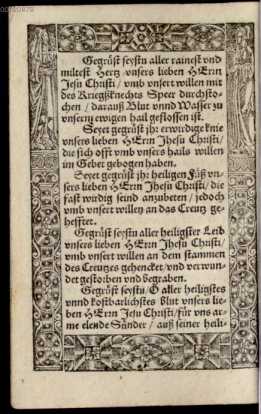 Gegrüst seystu aller rainest vnd
miltest Hertz vnsers lieben HErin
Jesu Christi / vmb vnsert willen mit
des Kriegßknechts Speer durchsto-
chen / darauß Blut vnnd Wasser zu
vnserm ewigen hail geflossen ist.
Seyet gegrüst jhr erwirdige knie
vnsers lieben HErin Jhesu Christi /
die sich offt vmb vnsers hails willen
im Gebet gebogen haben.
Seyet gegrüst jhr heiligen Füß vn-
sers lieben HErin Jhesu Christi / die
fast wirdig seind anzubeten / jedoch
vmb vnsert willen an das Creutz ge-
hefftet.
Gegrüst seystu aller heiligster Leib
vnsers lieben HErin Jhesu Christi /
vmb vnsert willen an dem stammen
des Creutzes gehencket / vnd verwun-
det gestorben vnd begraben.
Gegrüst seystu / O aller heiligstes
vnnd kostbarlichstes Blut vnsers lie-
ben HErin Jesu Christi / für vns ar-
me elende Sünder / auß seiner heili-